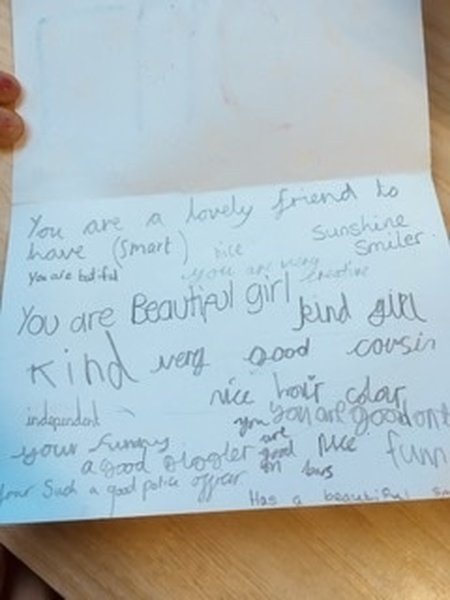 You are a lovely friend to
have (Smart) nice Sunshine
Smiler.
You are butiful
you are very
creative
You are Beautiful girl kind girl
Kind very good cousin
nice hair colour
independent
you You are good
your funny are nice fun
a good good
your Such a good police officer
Has a beautiful